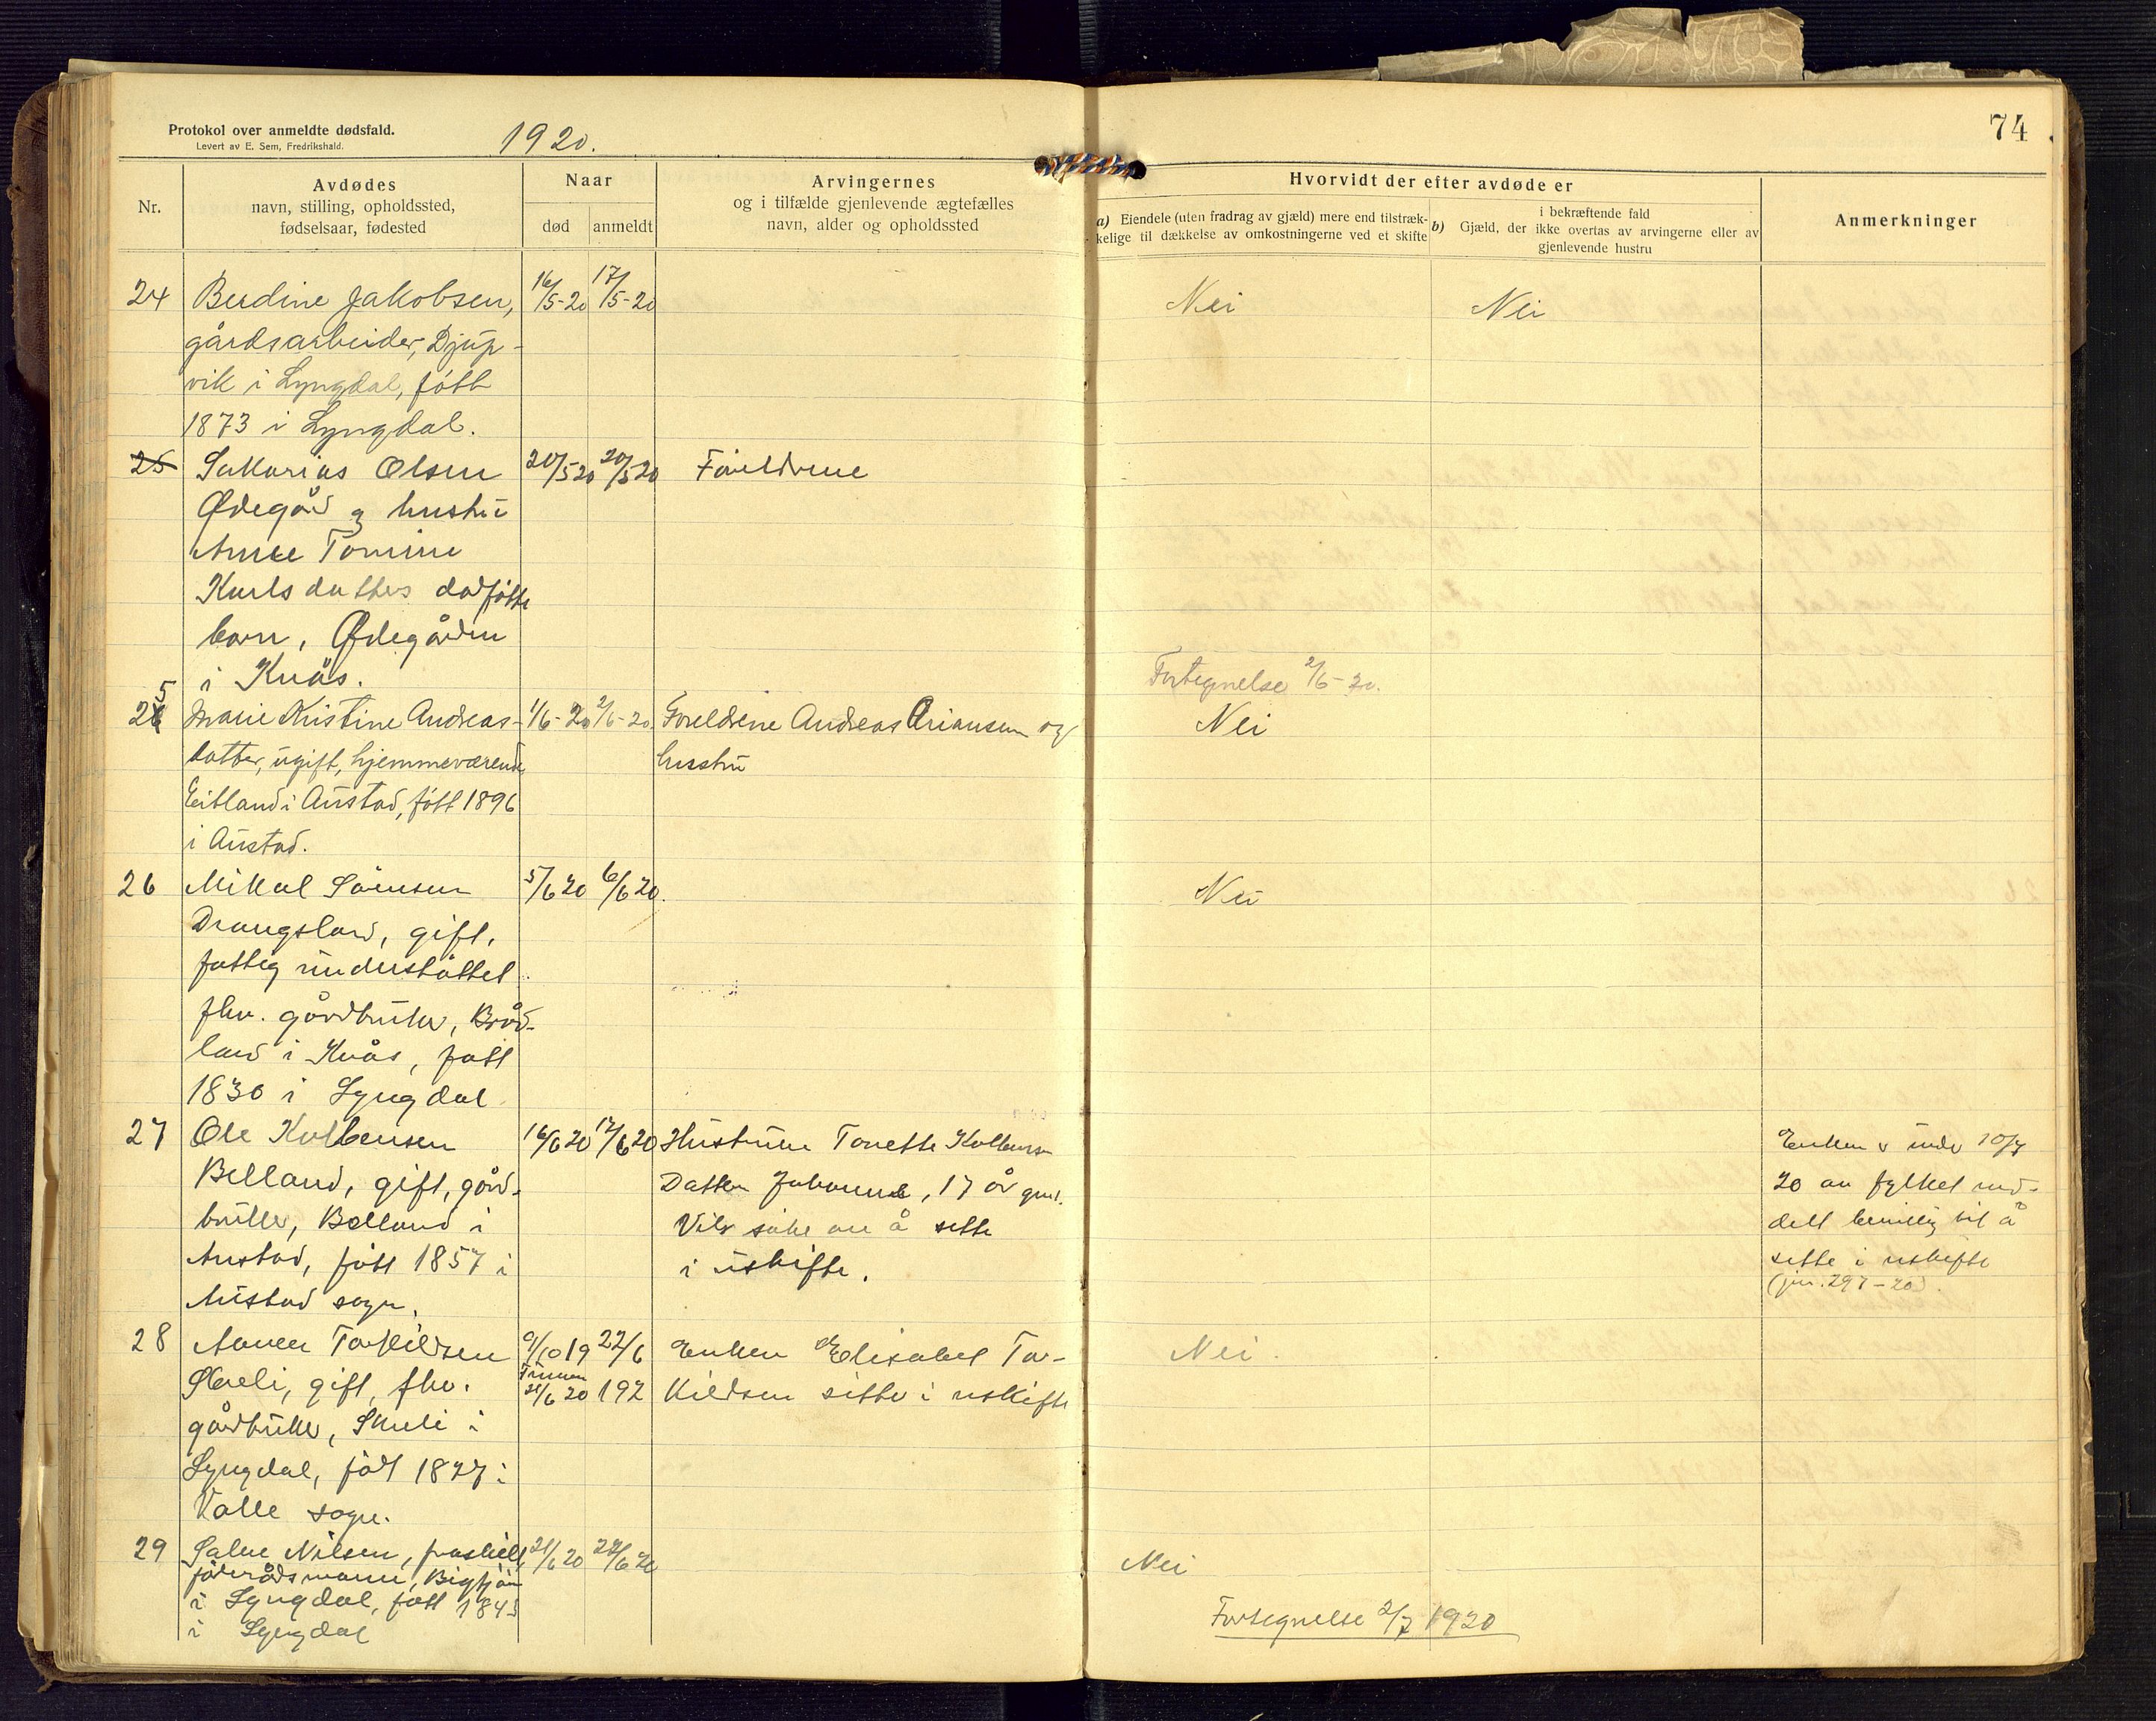 Protokol over anmeldte dødsfald.
Levert av E. Sem, Fredrikshald.
1920.
74
Nr.
Avdødes
navn, stilling, opholdssted,
fødselsaar, fødested
Naar
død
anmeldt
Arvingernes
og i tilfælde gjenlevende ægtefælles
navn, alder og opholdssted
Hvorvidt der efter avdøde er
a) Eiendele (uten fradrag av gjæld) mere end tilstræk-
kelige til dækkelse av omkostningerne ved et skifte
i bekræftende fald
b) Gjæld, der ikke overtas av arvingerne eller av
gjenlevende hustru
Anmerkninger
24 Berdine Jakobsen, 16/5-20 17/5-20 Nei Nei
gårdsarbeider, Djup-
vik i Lyngdal, født
1873 i Lyngdal.
25 Sakarias Olsen 20/5 20 20/5 20 Foreldrene
Ødegård og hustru
Anne Tomine
Karlsdatters dødfødte
barn, Ødegården
i Kvås.
Fortegnelse 2/6-20.
25 Marie Kristine Andreas- 1/6-20 2/6-20. Foreldrene Andreas Ariansen og Nei
datter, ugift, hjemmeværende hustru
Eitland i Austad, født 1896
i Austad.
26 Mikal Sørensen 5/6 20 6/6 20. Nei
Drangsland, gift,
fattigunderstøttet
fhv. gårdbruker, Bråd-
land i Kvås, født
1830 i Lyngdal
27 Ole Kolbensen 16/6 20 17/6 20 Hustruen Tonette Kolbensen
Belland, gift, gård- Datter Johanne, 17 år gml.
bruker, Belland i Vil søke om å sitte
Austad, født 1857 i i uskifte.
Austad sogn.
Enken er under 10/7
20 av fylket med-
delt bevilling til å
sitte i uskifte
(jnr. 297-20)
28 Torkildsen 9/10 19 22/6 Enken Elisabet Tor- Nei.
Skreli, gift, fhv. 21/6 20 192 kildsen sitter i uskifte
gårdbruker, Skreli i
Lyngdal, født 1827 i
Valle sogn.
29 Salve Nilsen, fraskilt, 21/6 20 22/6 20 Nei
føderådsmann, Bigtjøn
i Lyngdal, født 1845
i Lyngdal
Fortegnelse 2/7 1920